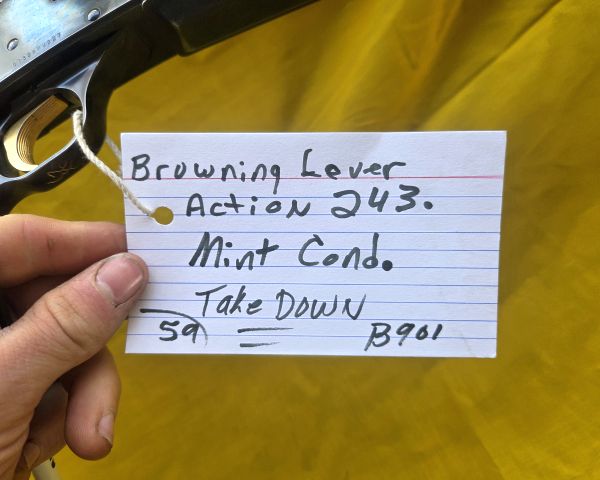 Browning Lever
Action 243.
Mint Cond.
Take DOWN
59
B901